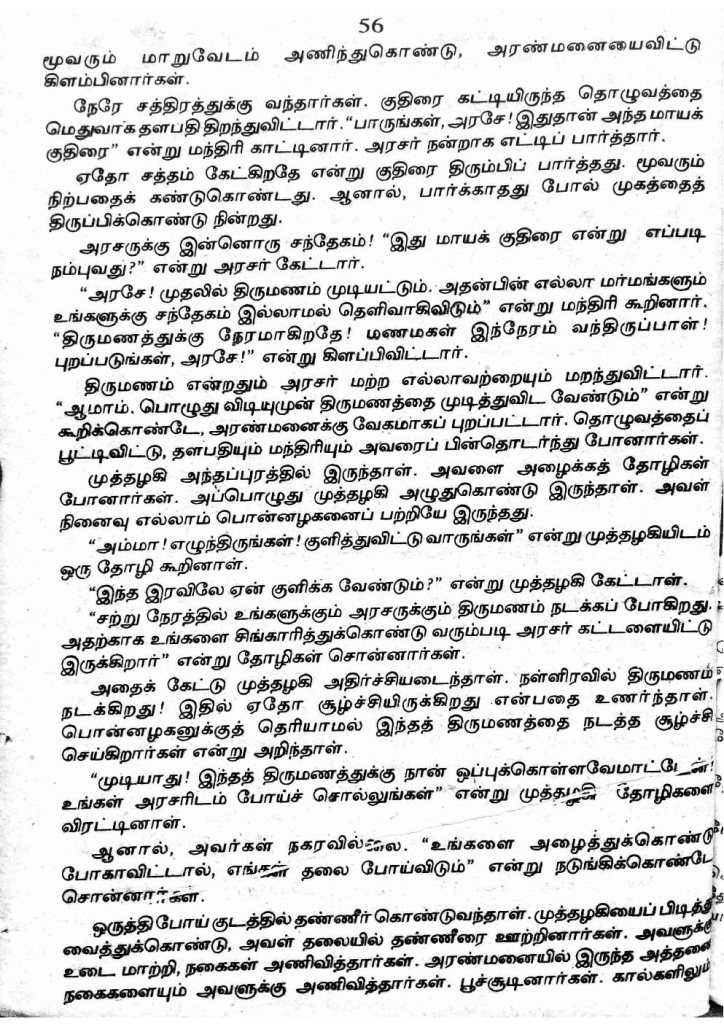 56
மூவரும் மாறுவேடம் அணிந்துகொண்டு, அரண்மனையைவிட்டு
கிளம்பினார்கள்.
நேரே சத்திரத்துக்கு வந்தார்கள். குதிரை கட்டியிருந்த தொழுவத்தை
மெதுவாக தளபதி திறந்துவிட்டார். “பாருங்கள், அரசே! இதுதான் அந்த மாயக்
குதிரை” என்று மந்திரி காட்டினார். அரசர் நன்றாக எட்டிப் பார்த்தார்.
ஏதோ சத்தம் கேட்கிறதே என்று குதிரை திரும்பிப் பார்த்தது. மூவரும்
நிற்பதைக் கண்டுகொண்டது. ஆனால், பார்க்காதது போல் முகத்தைத்
திருப்பிக்கொண்டு நின்றது.
அரசருக்கு இன்னொரு சந்தேகம்! “இது மாயக் குதிரை என்று எப்படி
நம்புவது?” என்று அரசர் கேட்டார்.
“அரசே! முதலில் திருமணம் முடியட்டும். அதன்பின் எல்லா மர்மங்களும்
உங்களுக்கு சந்தேகம் இல்லாமல் தெளிவாகிவிடும்” என்று மந்திரி கூறினார்.
“திருமணத்துக்கு நேரமாகிறதே! மணமகள் இந்நேரம் வந்திருப்பாள்!
புறப்படுங்கள், அரசே!” என்று கிளப்பிவிட்டார்.
திருமணம் என்றதும் அரசர் மற்ற எல்லாவற்றையும் மறந்துவிட்டார்.
“ஆமாம். பொழுது விடியுமுன் திருமணத்தை முடித்துவிட வேண்டும்” என்று
கூறிக்கொண்டே, அரண்மனைக்கு வேகமாகப் புறப்பட்டார். தொழுவத்தைப்
பூட்டிவிட்டு, தளபதியும் மந்திரியும் அவரைப் பின்தொடர்ந்து போனார்கள்.
முத்தழகி அந்தப்புரத்தில் இருந்தாள். அவளை அழைக்கத் தோழிகள்
போனார்கள். அப்பொழுது முத்தழகி அழுதுகொண்டு இருந்தாள். அவள்
நினைவு எல்லாம் பொன்னழகனைப் பற்றியே இருந்தது.
“அம்மா! எழுந்திருங்கள்! குளித்துவிட்டு வாருங்கள்” என்று முத்தழகியிடம்
ஒரு தோழி கூறினாள்.
“இந்த இரவிலே ஏன் குளிக்க வேண்டும்?” என்று முத்தழகி கேட்டாள்.
“சற்று நேரத்தில் உங்களுக்கும் அரசருக்கும் திருமணம் நடக்கப் போகிறது.
அதற்காக உங்களை சிங்காரித்துக்கொண்டு வரும்படி அரசர் கட்டளையிட்டு
இருக்கிறார்” என்று தோழிகள் சொன்னார்கள்.
அதைக் கேட்டு முத்தழகி அதிர்ச்சியடைந்தாள். நள்ளிரவில் திருமணம்
நடக்கிறது! இதில் ஏதோ சூழ்ச்சியிருக்கிறது என்பதை உணர்ந்தாள்.
பொன்னழகனுக்குத் தெரியாமல் இந்தத் திருமணத்தை நடத்த சூழ்ச்சி
செய்கிறார்கள் என்று அறிந்தாள்.
“முடியாது! இந்தத் திருமணத்துக்கு நான் ஒப்புக்கொள்ளவேமாட்டேன்!
உங்கள் அரசரிடம் போய்ச் சொல்லுங்கள்” என்று முத்தழகி தோழிகளை
விரட்டினாள்.
ஆனால், அவர்கள் நகரவில்லை. “உங்களை அழைத்துக்கொண்டு
போகாவிட்டால், எங்கள் தலை போய்விடும்” என்று நடுங்கிக்கொண்டே
சொன்னார்கள்.
ஒருத்தி போய் குடத்தில் தண்ணீர் கொண்டுவந்தாள். முத்தழகியைப் பிடித்து
வைத்துக்கொண்டு, அவள் தலையில் தண்ணீரை ஊற்றினார்கள். அவளுக்கு
உடை மாற்றி, நகைகள் அணிவித்தார்கள். அரண்மனையில் இருந்த அத்தனை
நகைகளையும் அவளுக்கு அணிவித்தார்கள். பூச்சூடினார்கள். கால்களிலும்